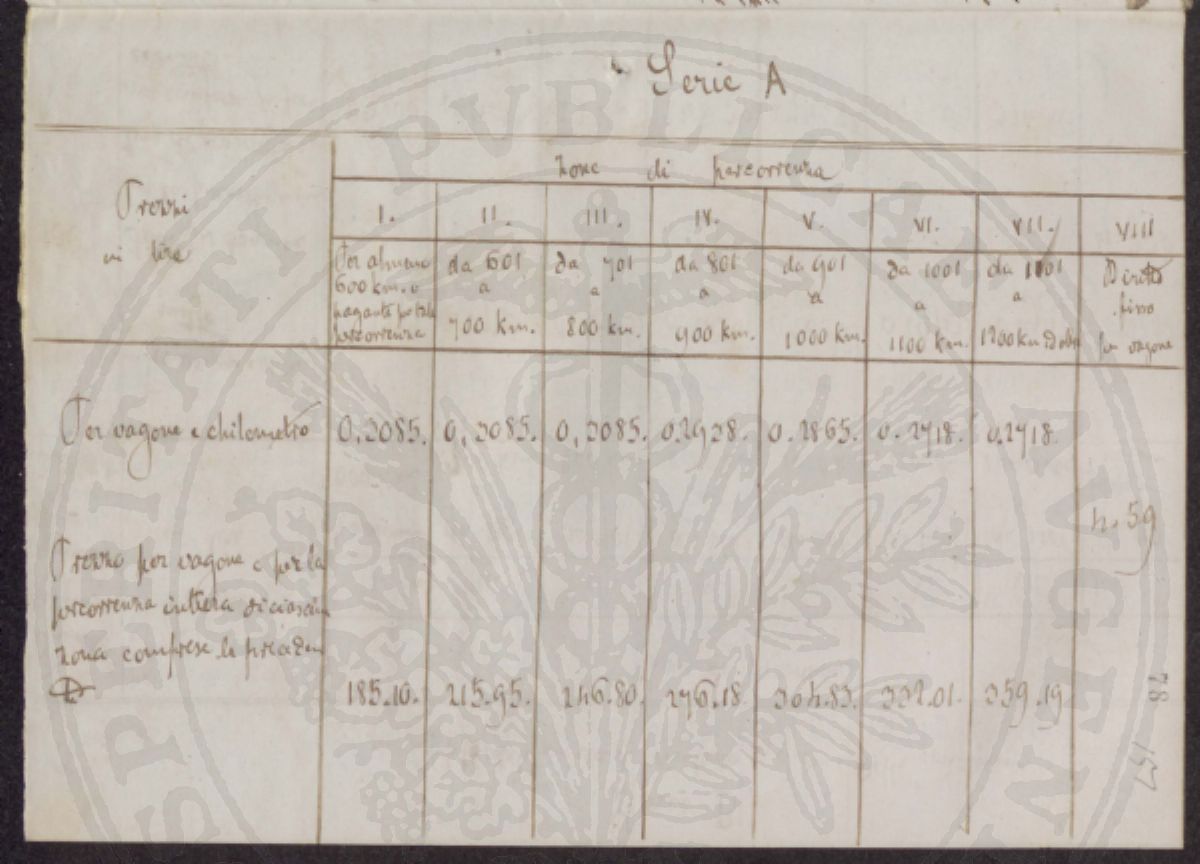 Serie A
Prezzi
in lire
Zone di percorrenza
I. II. III. IV. V. VI. VII. VIII
Per almeno
600 km. o
paganti per tale
percorrenza
da 601
a
700 km.
da 701
a
800 km.
da 801
a
900 km.
da 901
a
1000 km.
da 1001
a
1100 km.
da 1101
a
1200 km ed oltre
Diritto
fisso
per vagone
Per vagone e chilometro 0,3085. 0,3085. 0,3085. 0.2938. 0.2865. 0.2718. 0.2718.
4.59
Prezzo per vagone e per la
percorrenza intiera di ciascuna
zona comprese le preceden
ti
185.10. 215.95. 246.80. 276.18 304.83. 332.01. 359.19
78
157
SPERITATI PVBLICAE AVGEN